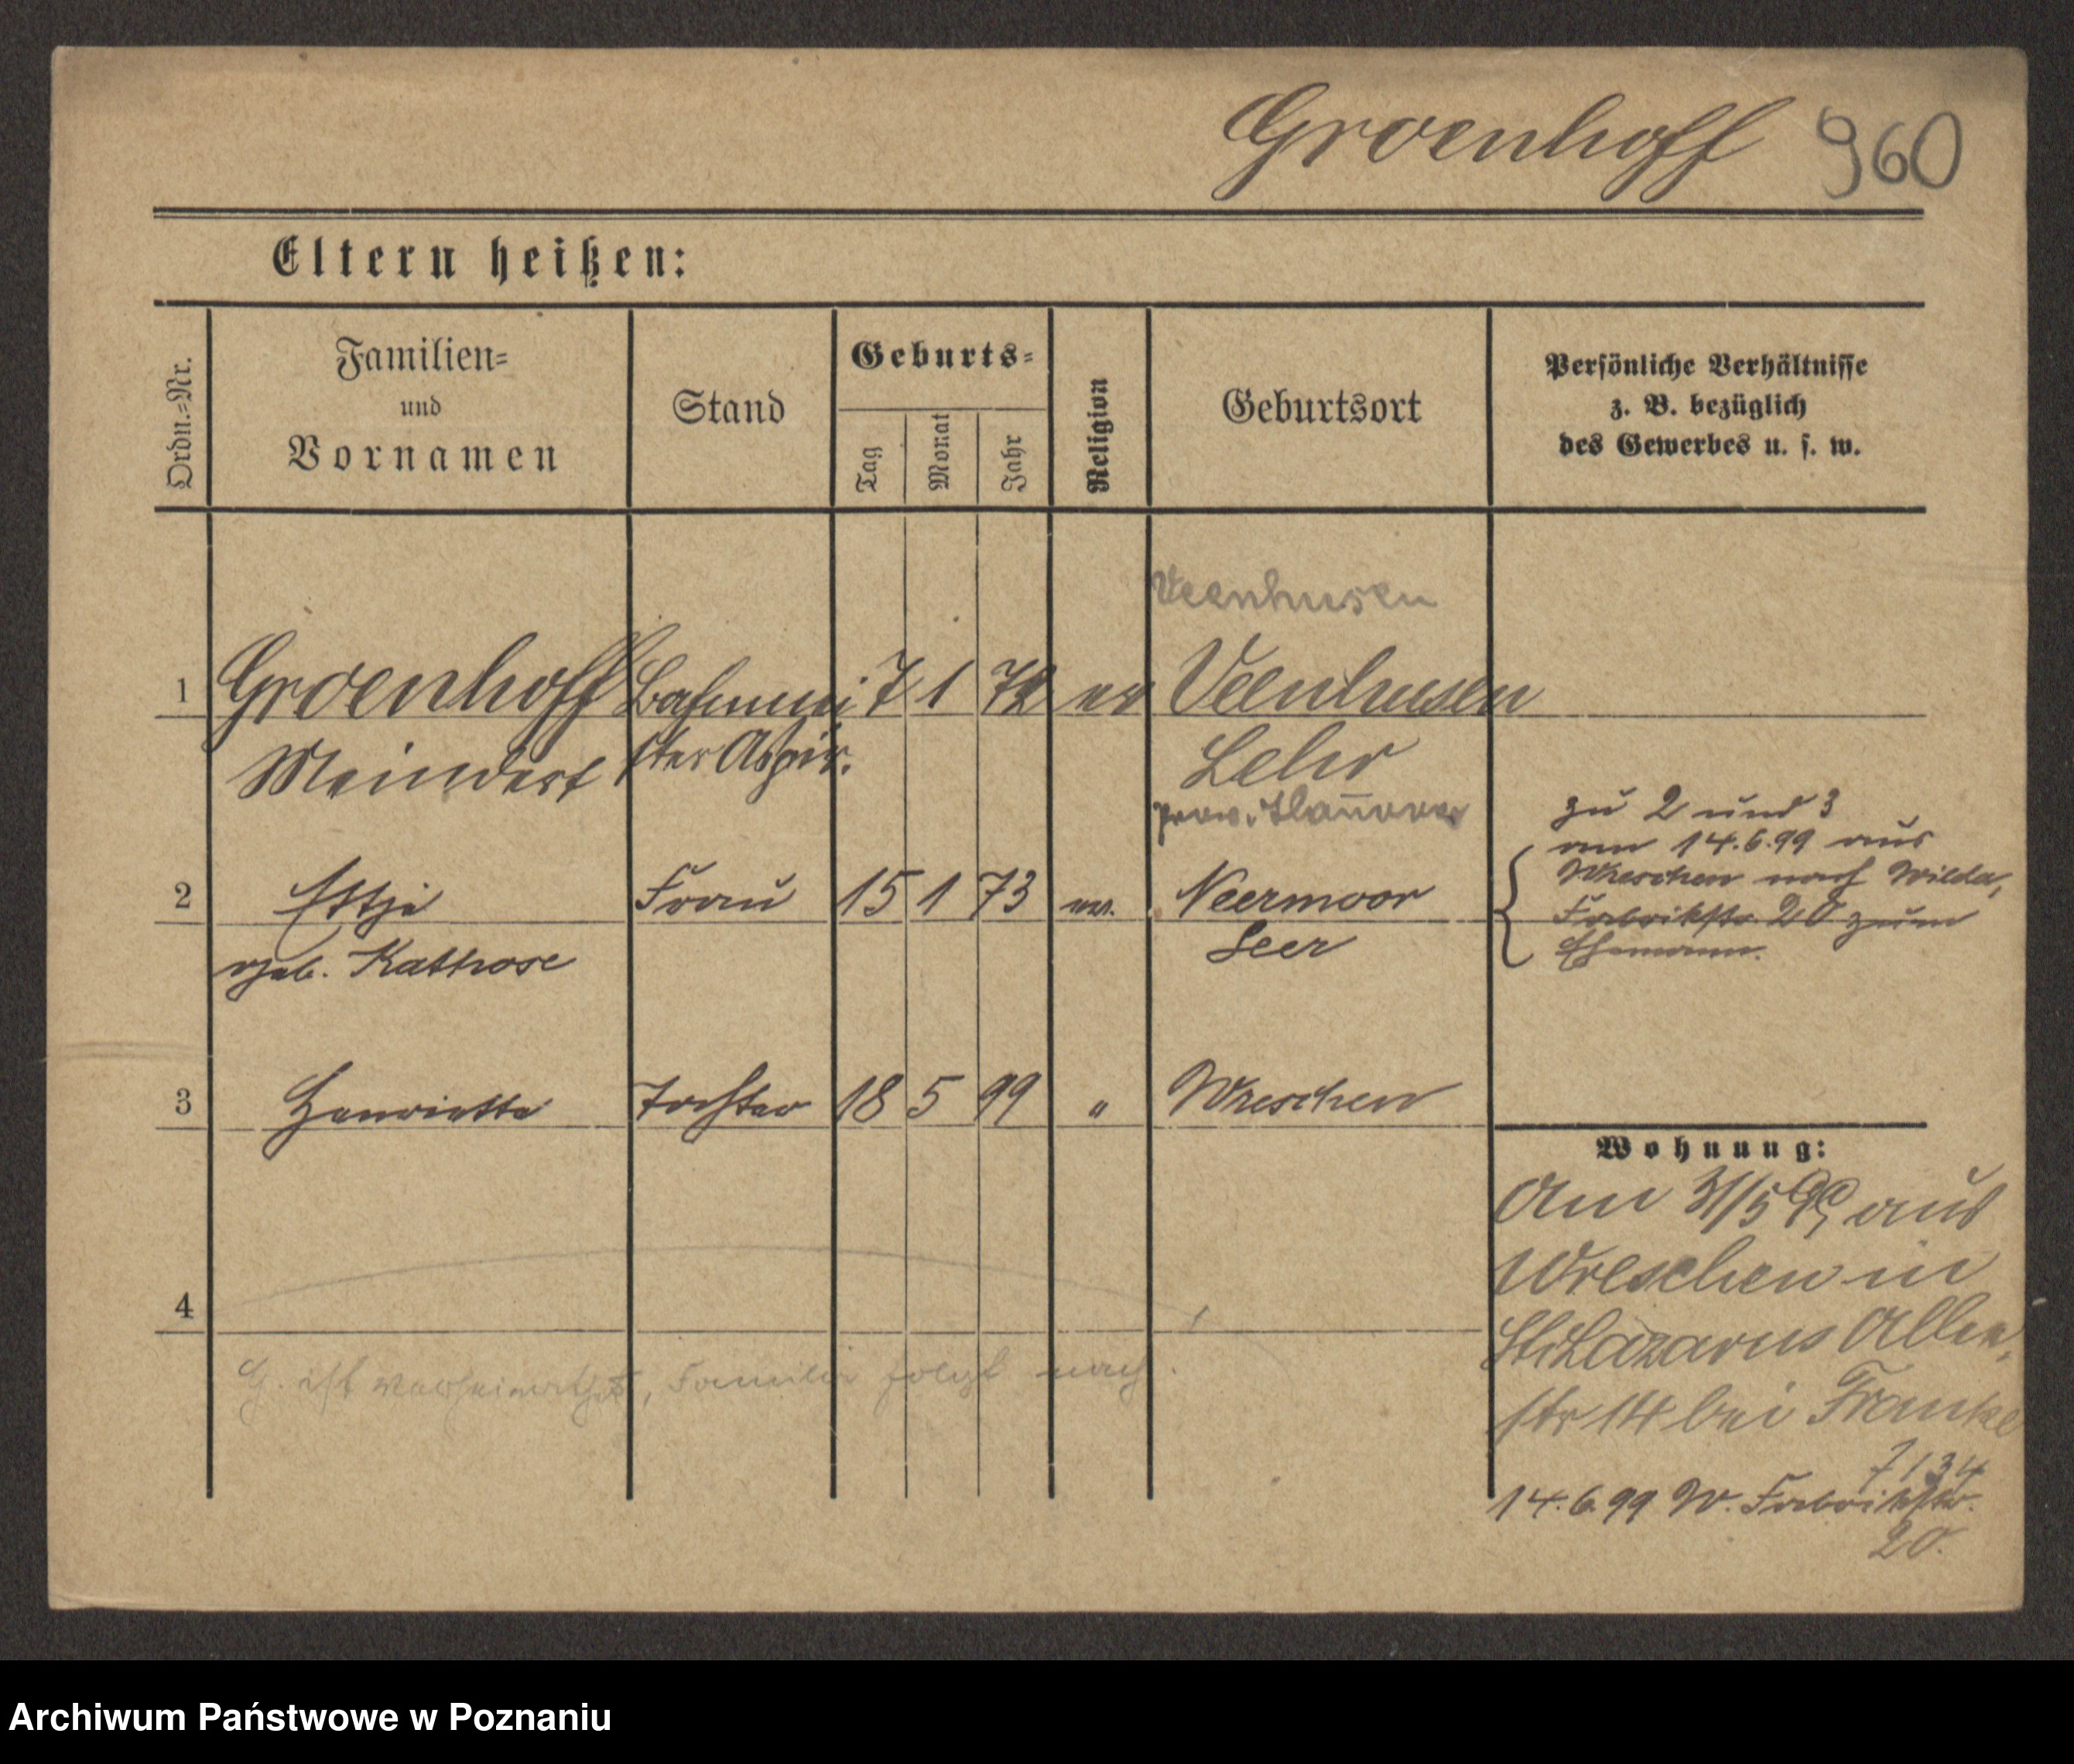 Groenhoff 960
Eltern heißen:
Ordn.-Nr.
Familien-
und
Vornamen
Stand
Geburts-
Tag
Monat
Jahr
Religion
Geburtsort
Persönliche Verhältnisse
z. B. bezüglich
des Gewerbes u. s. w.
Veenhusen
1 Groenhoff Bahnmei 7 1 72 ev Veenhusen
Meindert ster Aspir. Lehr
Prov. Han̄over
zu 2 und 3
am 14.6.99 aus
Wreschen nach Wilda,
Fabrikstr. 20 zum
Ehemann.
2 Ettje Frau 15 1 73 ev. Neermoor
geb. Kathose Leer
3 Henriette Tochter 18 5 99 " Wreschen
4
G. ist verheirathet, Familie folgt nach.
Wohnung:
Am 31/5 99 aus
Wreschen in
St. Lazarus Alben
str 14 bei Franke
7134
14.6.99 W. Fabrikstr.
20.
Archiwum Państwowe w Poznaniu